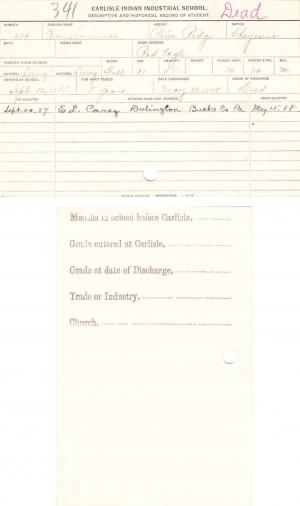 341 CARLISLE INDIAN INDUSTRIAL SCHOOL. Dead
DESCRIPTIVE AND HISTORICAL RECORD OF STUDENT.
NUMBER ENGLISH NAME AGENCY NATION
Pine Ridge Cheyenne
BAND INDIAN NAME HOME ADDRESS
Red Eagle
PARENTS LIVING OR DEAD BLOOD AGE HEIGHT WEIGHT FORCED INSP. FORCED EXPR. SEX
FATHER Living MOTHER Living Full 17 M.
ARRIVED AT SCHOOL FOR WHAT PERIOD DATE DISCHARGED CAUSE OF DISCHARGE
5 years May 1888 Died
TO COUNTRY PATRONS NAME AND ADDRESS FROM COUNTRY
Sept. 20, 87 Ed. Carey Dolington Bucks Co Pa May 15, 88
Months in school before Carlisle,
Grade entered at Carlisle,
Grade at date of Discharge,
Trade or Industry,
Church,